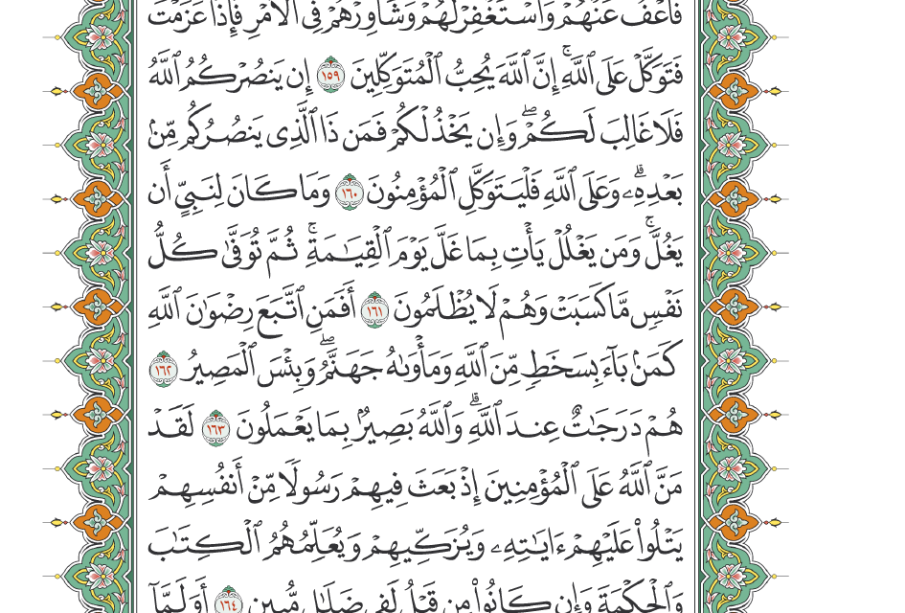 فَٱعۡفُ عَنۡهُمۡ وَٱسۡتَغۡفِرۡ لَهُمۡ وَشَاوِرۡهُمۡ فِي ٱلۡأَمۡرِۖ فَإِذَا عَزَمۡتَ
فَتَوَكَّلۡ عَلَى ٱللَّهِۚ إِنَّ ٱللَّهَ يُحِبُّ ٱلۡمُتَوَكِّلِينَ ١٥٩ إِن يَنصُرۡكُمُ ٱللَّهُ
فَلَا غَالِبَ لَكُمۡۖ وَإِن يَخۡذُلۡكُمۡ فَمَن ذَا ٱلَّذِي يَنصُرُكُم مِّنۢ
بَعۡدِهِۦۗ وَعَلَى ٱللَّهِ فَلۡيَتَوَكَّلِ ٱلۡمُؤۡمِنُونَ ١٦٠ وَمَا كَانَ لِنَبِيٍّ أَن
يَغُلَّۚ وَمَن يَغۡلُلۡ يَأۡتِ بِمَا غَلَّ يَوۡمَ ٱلۡقِيَٰمَةِۚ ثُمَّ تُوَفَّىٰ كُلُّ
نَفۡسٖ مَّا كَسَبَتۡ وَهُمۡ لَا يُظۡلَمُونَ ١٦١ أَفَمَنِ ٱتَّبَعَ رِضۡوَٰنَ ٱللَّهِ
كَمَنۢ بَآءَ بِسَخَطٖ مِّنَ ٱللَّهِ وَمَأۡوَىٰهُ جَهَنَّمُۖ وَبِئۡسَ ٱلۡمَصِيرُ ١٦٢
هُمۡ دَرَجَٰتٌ عِندَ ٱللَّهِۗ وَٱللَّهُ بَصِيرُۢ بِمَا يَعۡمَلُونَ ١٦٣ لَقَدۡ
مَنَّ ٱللَّهُ عَلَى ٱلۡمُؤۡمِنِينَ إِذۡ بَعَثَ فِيهِمۡ رَسُولٗا مِّنۡ أَنفُسِهِمۡ
يَتۡلُواْ عَلَيۡهِمۡ ءَايَٰتِهِۦ وَيُزَكِّيهِمۡ وَيُعَلِّمُهُمُ ٱلۡكِتَٰبَ
وَٱلۡحِكۡمَةَ وَإِن كَانُواْ مِن قَبۡلُ لَفِي ضَلَٰلٖ مُّبِينٍ ١٦٤ أَوَلَمَّآ